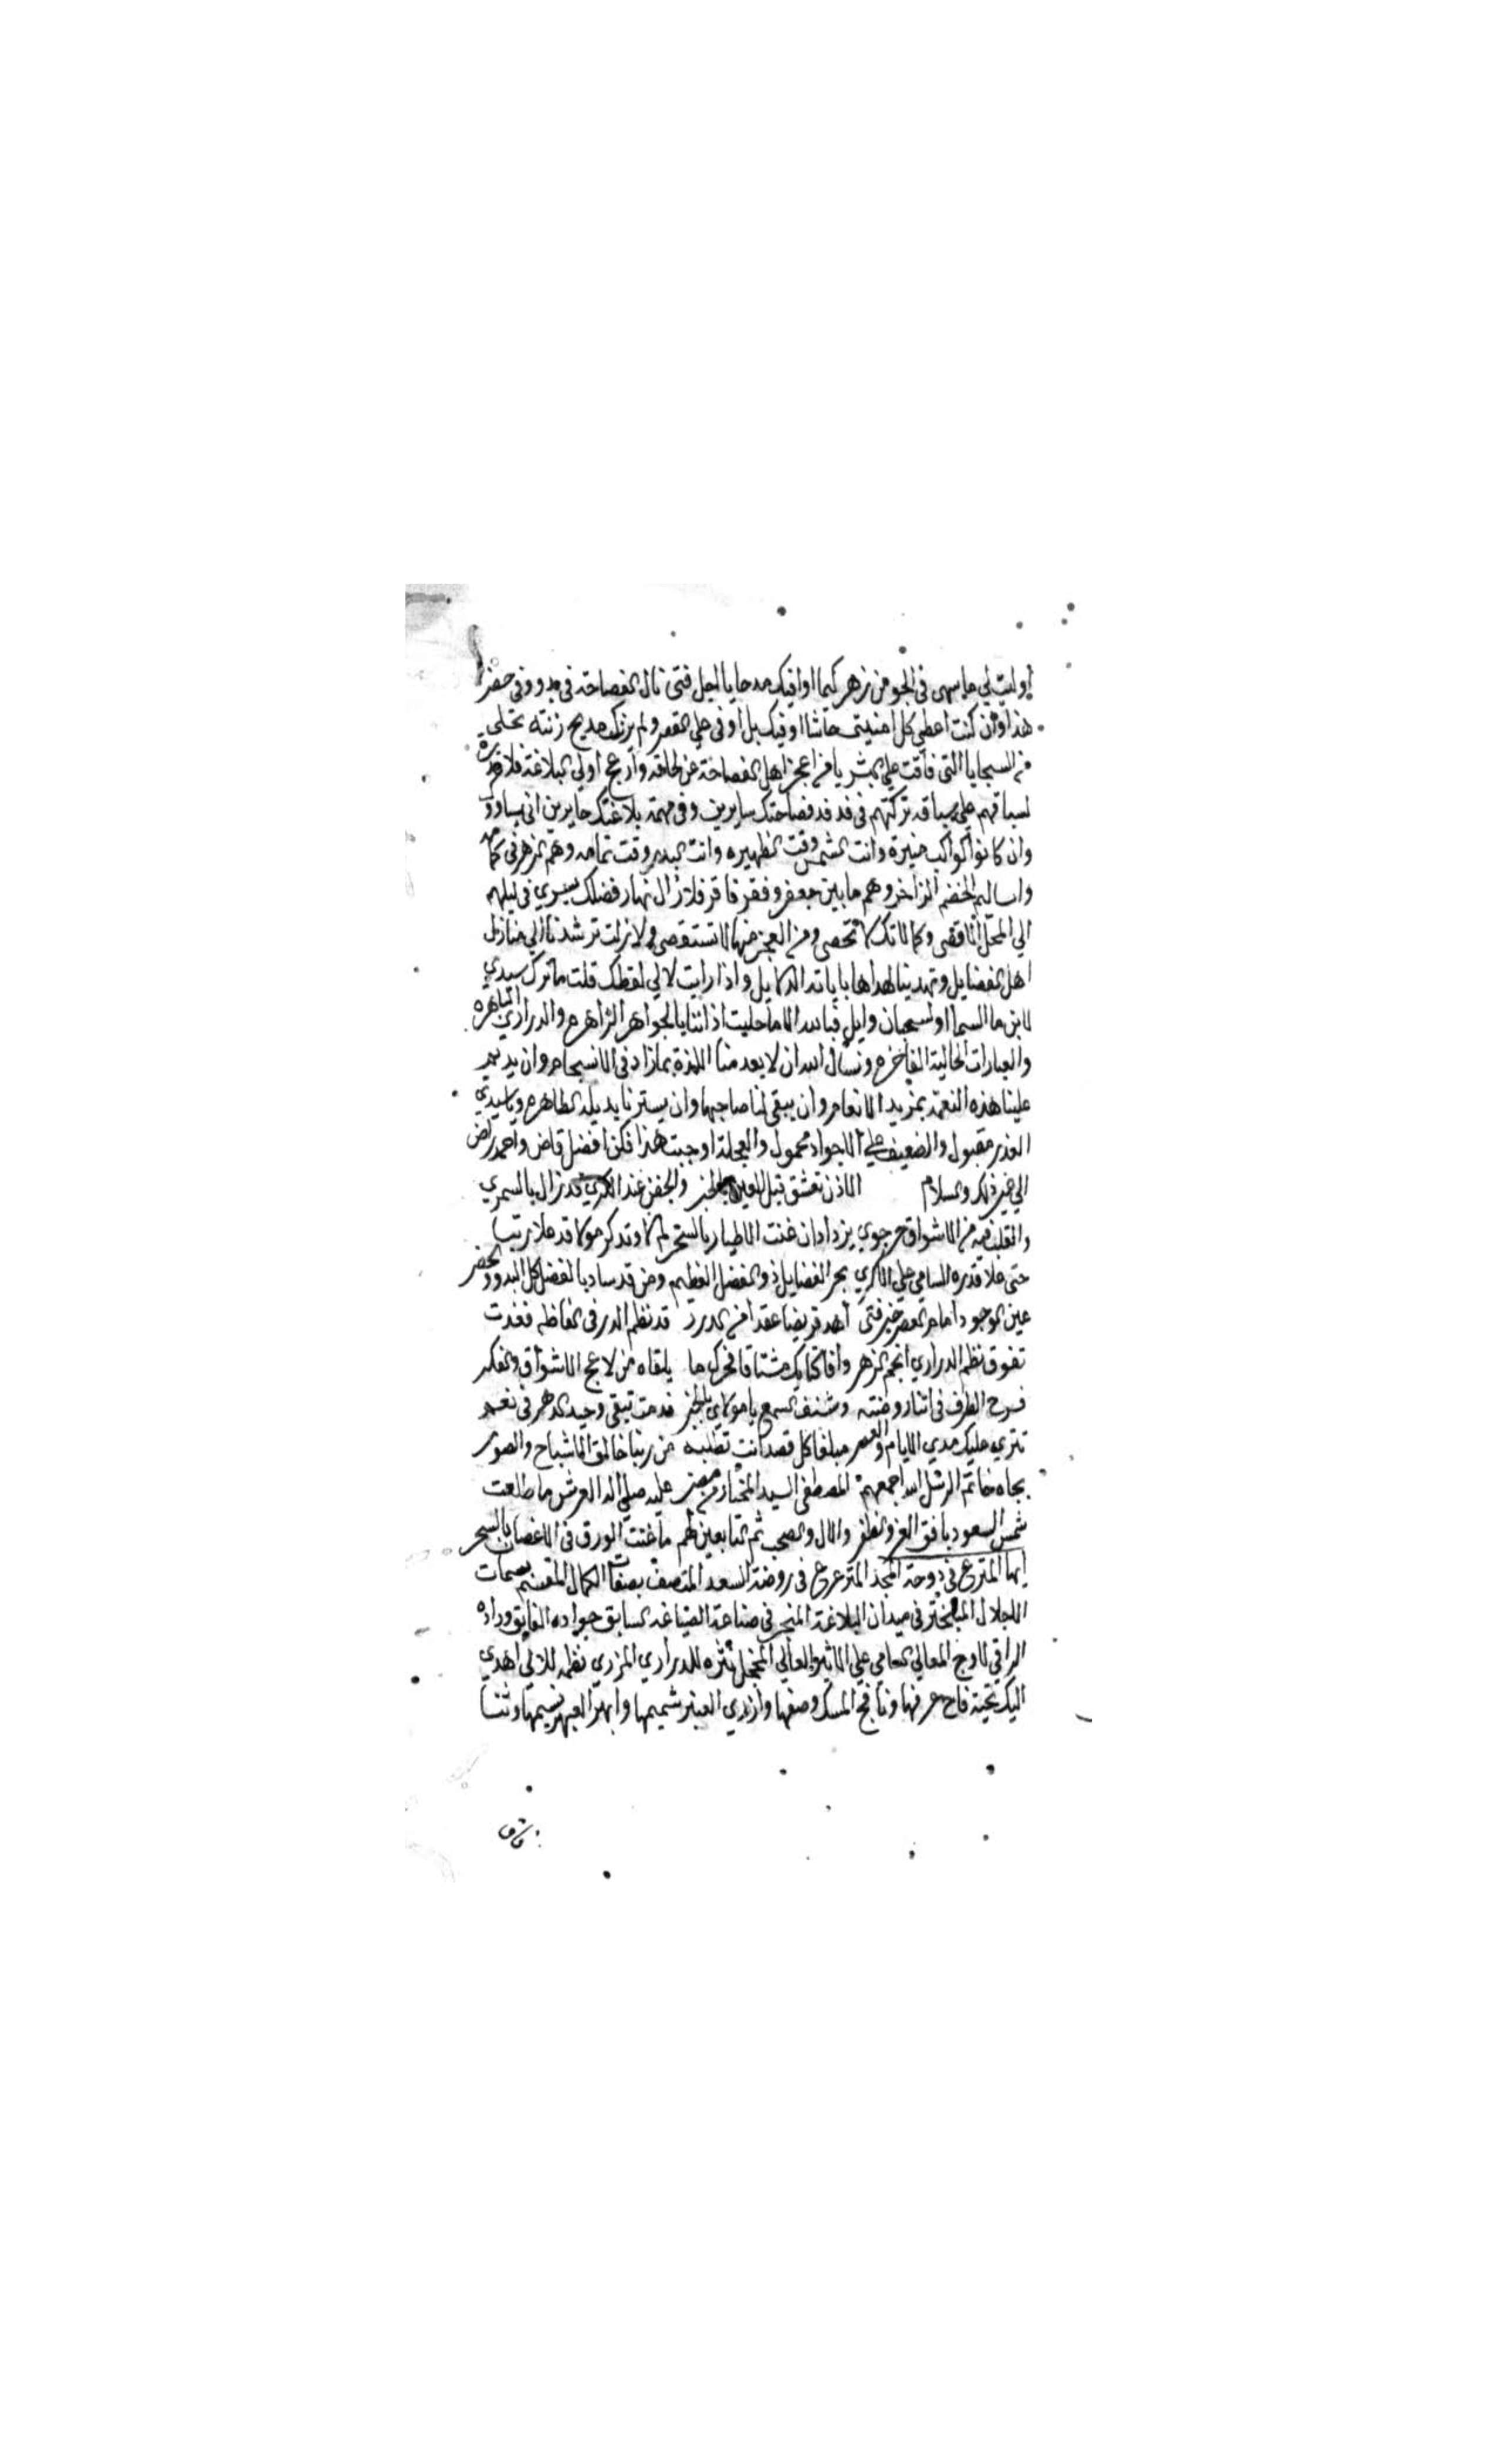 اوليت لي ما سهى في الجو من زهر كيما اوافيك مدحا يا اجل فتى نال الفصاحة في بدو وفي حضر
هذا وان كنت اعطي كل امنيتي حاشا اوفيك بل اوفى على القصر ولم يزنك مديح زنته بحلي
من السجايا التي فاقت على البشر يا من اعجز اهل الفصاحة عن لحاقه وارجع اولي البلاغة فلا قدرة
لسباقهم على سباقه تركتهم في فدفد فصاحتك سايرين وفي مهمه بلاغتك حايرين انى يساووك
وان كانوا كواكب منيرة وانت الشمس وقت الظهيره وانت البدر وقت تمامه وهم الزهر في كمامه
وانت اليم الخضم الزاخر وهم ما بين جعفر وفقر فاقر فلا زال نهار فضلك يسري في ليلهم
الي المحل الاقصى وكمالاتك لا تحصى ومن العجز عنها لا تستقصى ولا زلت ترشدنا الي منازل
اهل الفضايل وتهدينا لهداها بايات الدلايل واذا رايت لالي لفظك قلت ما ترك سيدي
لابن ما السما او لسحبان وايل فبالله الا ما حليت اذاننا بالجواهر الزاهره والدراري الباهره
والعبارات الحالية الفاخره ونسال الله ان لا يعدمنا اللذة بما زاد في الانسجام وان يديم
علينا هذه النعمة بمزيد الانعام وان يبقي لنا صاحبها وان يسترنا بديله الطاهره ويا سيدي
العذر مقبول والضعيف على الاجواد محمول والعجلة اوجبت هذا فكن افضل قاض واحمد راض
الي خير ذلك والسلام الاذن تعشق قبل العين بالخبر والجفن عند الكرى قد زال بالسهر
والقلب فيه من الاشواق حر جوي يزداد ان غنت الاطيار بالسحر لم لا وتذكر مولا قد علا رتبا
حتى علا قدره السامي علي الاكر بحر الفضايل ذو الفضل العظيم ومن قد ساد بالفضل كل البدو والحضر
عين الوجود امام العصر خير فتى اهد قريضا عقدا من الدرر قد نظم الدر في الفاظه فغدت
تفوق نظم الدراري انجم الزهر وافا كتابك مشتاقا فحرك ما يلقاه من لاعج الاشواق والفكر
فسرح الطرف في اثنا روضته وشنف السمع يا مولاي بالخبر فدمت تبقى وحيد الدهر في نعم
تترى عليك مدي الايام والعصر مبلغا كل قصد انت تطلبه من ربنا خالق الاشباح والصور
بجاه خاتم الرسل الله اجمعهم المصطفى السيد المختار من مضر عليه صلى اله العرش ما طلعت
شمس السعود بافق العز والظفر والال والصحب ثم التابعين لهم ما غنت الورق في الاغصان بالسحر
ايها المترع في دوحة المجد المترعرع في روضة السعد المتصف بصفات الكمال المتسم بسمات
الاجلال المتبختر في ميدان البلاغة في صناعة الصياغه السابق جواده الفايق وراده
الراقي لاوج المعالي السامي علي الاثير والعالي المخجل نثره للدراري المزري نظمه للالي اهدي
اليك تحية فاح عرفها ونافح المسك وصفها وازدري العنبر شميمها وابهر العبهر نسيمها وثنا